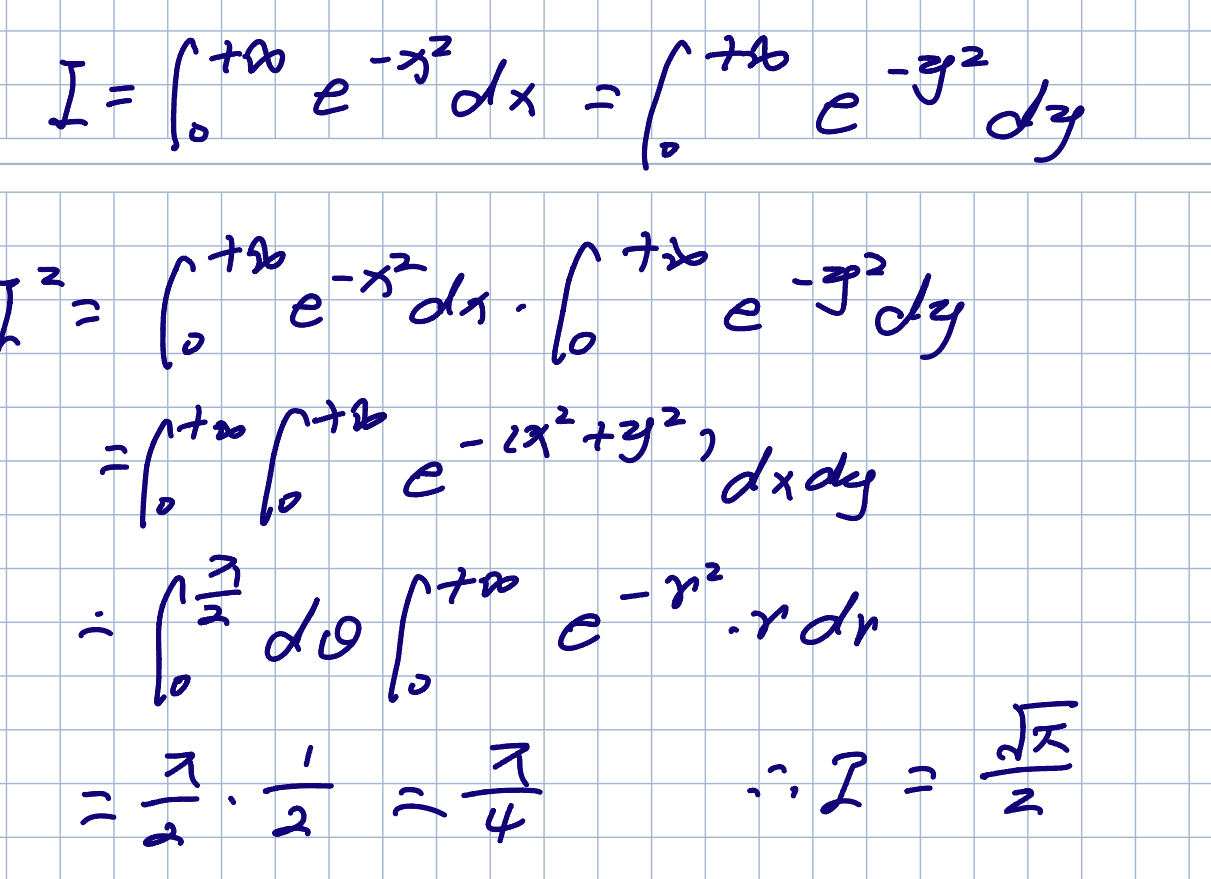 I = ∫₀^{+∞} e^{-x²} dx = ∫₀^{+∞} e^{-y²} dy
I² = ∫₀^{+∞} e^{-x²} dx · ∫₀^{+∞} e^{-y²} dy
= ∫₀^{+∞} ∫₀^{+∞} e^{-(x²+y²)} dx dy
= ∫₀^{π/2} dθ ∫₀^{+∞} e^{-r²} · r dr
= π/2 · 1/2 = π/4 ∴ I = √π/2